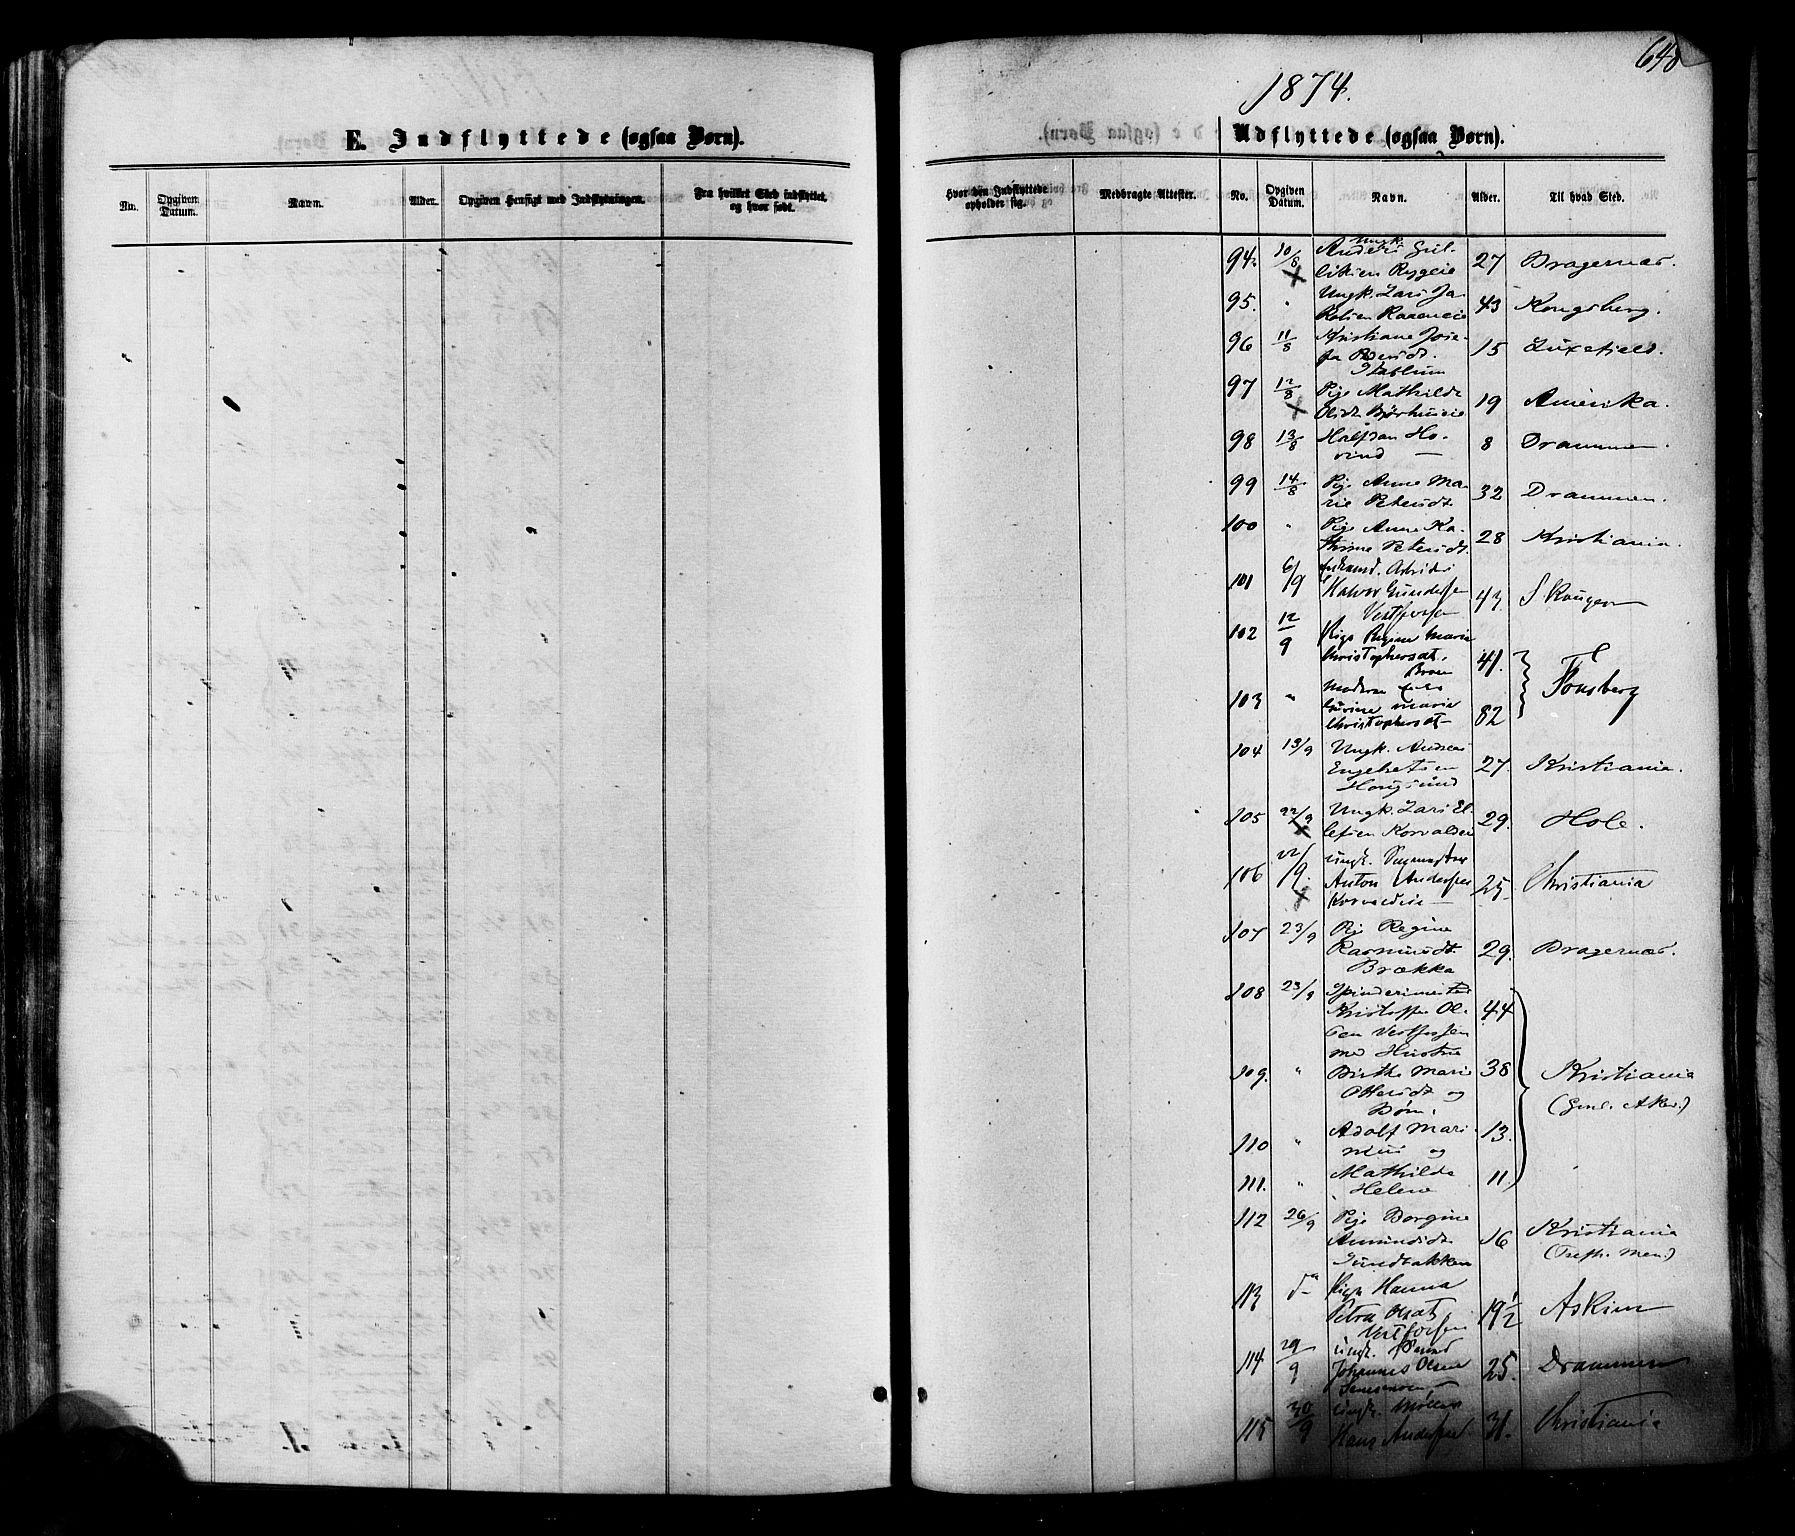 648
1874.
E. Indflyttede (ogsaa Børn).
Udflyttede (ogsaa Børn).
No. Opgiven Datum. Navn. Alder. Opgiven Hensigt med Indflytningen. Fra hvilket Sted indflyttet, og hvor født.
Hvor den Indflyttede opholder sig. Medbragte Attester. No. Opgiven Datum. Navn. Alder. Til hvad Sted.
94. 10/8 Ungk. Anders Gul-
liksen Rygeie 27 Bragernæs.
95. " Ungk. Lars Ja-
kobsen Raaeneie 43 Kongsberg.
96 11/8 Kristiane Jose-
fa 15
Stablum
97 12/8 Pige Mathilde
Olsdt. 19 Amerika.
98 13/8 Halfdan Ho-
vind — 8 Drammen
99 14/8 Pige Anne Ma-
rie Petersdt. 32 Drammen.
100 " Pige Anne Ka-
thrine Petersdt. 28 Kristiania.
101 6/9
Halvor Gundersen 43. Skauger
Vestfossen
102 12/9 Pige Regine Marie
Christophersdt. 41.
Braa
103 " Moderen Enke
marie Tønsberg
Christophersdt 82
104 13/9 Ungk. Andreas
Engebretsen 27. Kristiania.
Hougsund
105 22/9 Ungk. Lars El-
lefsen Korvalden 29. Hole.
106 22/9. ungk.
Anton Andersen 25. Christiania
Korvaldeie —
107 23/9 Pige Regine
Rasmusdt. 29. Bragernæs.
Brækka
108 23/9 Spinderimester
Kristoffer Ol- 44
sen Vestfossen
med Hustru
109. " Birthe Marie 38 Kristiania
Olsdt og (Gml. Aker.)
Børn:
110 " Adolf Mari- 13.
nius og
111. " Mathilde 11.
Helene
112 26/9 Pige Borgine
Amundsdt. 16 Kristiania
Sundbakken
113 Pige Hanna
Petra Olsdt, 19 1/2 Askim
Vestfossen
114 29/9 ungk.
Johannes Olsen 25. Drammen
115 30/9 ungk. Møller
Hans Andersen 31. Christiania